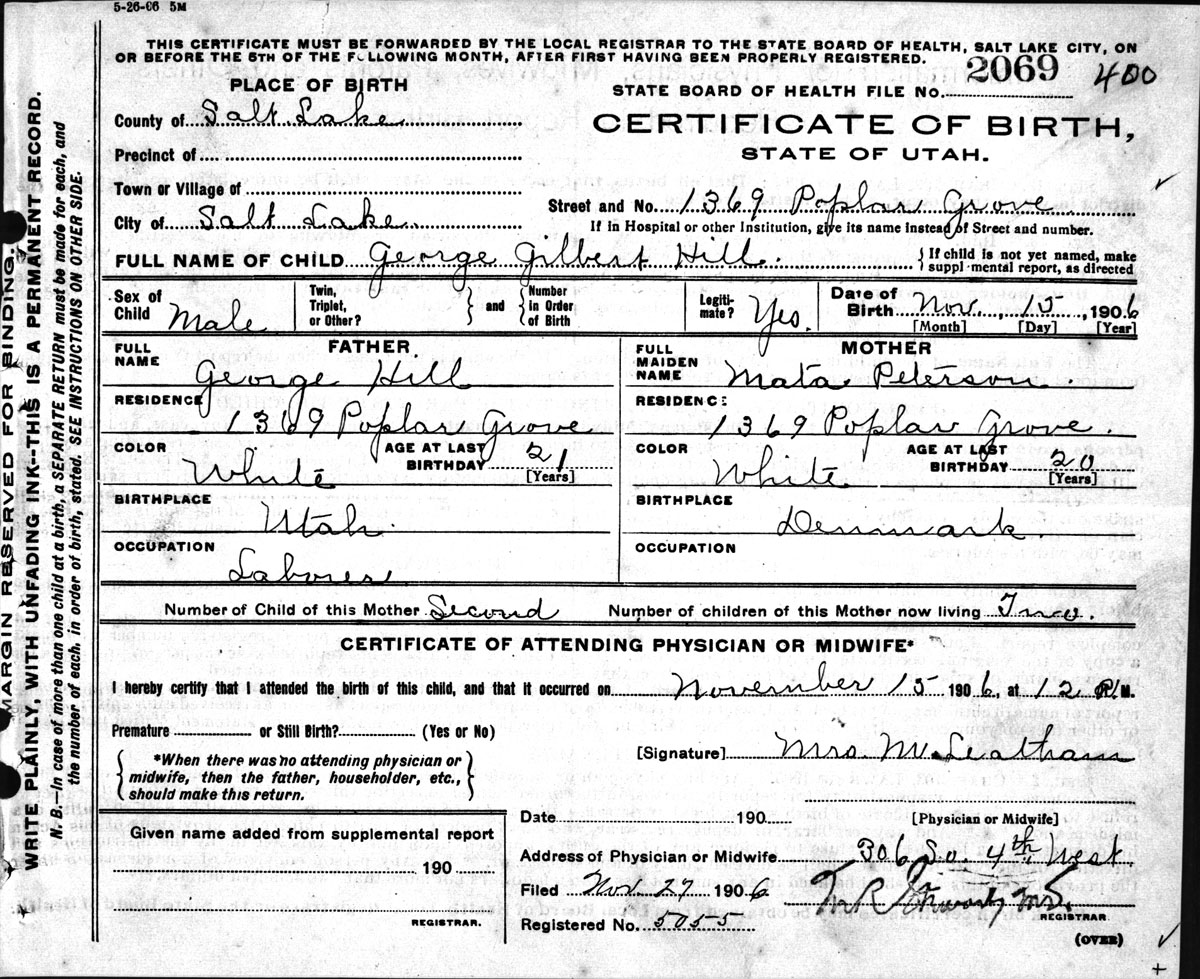 5-26-06 5M
THIS CERTIFICATE MUST BE FORWARDED BY THE LOCAL REGISTRAR TO THE STATE BOARD OF HEALTH, SALT LAKE CITY, ON
OR BEFORE THE 5TH OF THE FOLLOWING MONTH, AFTER FIRST HAVING BEEN PROPERLY REGISTERED.
STATE BOARD OF HEALTH FILE No. 2069 400
PLACE OF BIRTH
County of Salt Lake
CERTIFICATE OF BIRTH,
STATE OF UTAH.
Precinct of
Town or Village of
Street and No. 1369 Poplar Grove
City of Salt Lake
If in Hospital or other Institution, give its name instead of Street and number.
FULL NAME OF CHILD George Gilbert Hill. { If child is not yet named, make
suppl mental report, as directed
Sex of Child Male
Twin, Triplet, or Other? } and { Number in Order of Birth
Legiti-mate? Yes.
Date of Birth Nov. 15, 1906
[Month] [Day] [Year]
FATHER.
FULL NAME George Hill
RESIDENCE 1369 Poplar Grove
COLOR White AGE AT LAST BIRTHDAY 21 [Years]
BIRTHPLACE Utah.
OCCUPATION Laborer
MOTHER
FULL MAIDEN NAME Mata Peterson.
RESIDENCE 1369 Poplar Grove.
COLOR White AGE AT LAST BIRTHDAY 20 [Years]
BIRTHPLACE Denmark.
OCCUPATION
Number of Child of this Mother Second Number of children of this Mother now living Two.
CERTIFICATE OF ATTENDING PHYSICIAN OR MIDWIFE*
I hereby certify that I attended the birth of this child, and that it occurred on November 15 1906, at 12 P.M.
Premature or Still Birth? (Yes or No)
[Signature] Mrs. M. Leatham
{ *When there was no attending physician or
midwife, then the father, householder, etc.,
should make this return. }
[Physician or Midwife]
Given name added from supplemental report
190
REGISTRAR.
Date 190
Address of Physician or Midwife 306 So. 4th West
Filed Nov. 27 1906
REGISTRAR.
Registered No. 5055
(OVER)
MARGIN RESERVED FOR BINDING.
WRITE PLAINLY, WITH UNFADING INK--THIS IS A PERMANENT RECORD.
N. B.—In case of more than one child at a birth, a SEPARATE RETURN must be made for each, and
the number of each, in order of birth, stated. SEE INSTRUCTIONS ON OTHER SIDE.